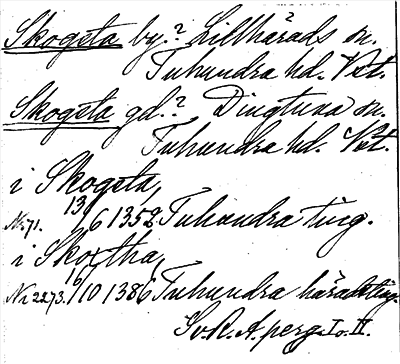 Skogsta by.? Lillhärads sn.
Tuhundra hd. Vstl.
Skogsta gd.? Dingtuna sn.
Tuhundra hd. Vstl.
i Skogsta,
Nr 71. 13/6 1352 Tuhundra ting.
i Skoctha,
Nr 2273. 16/10 1386 Tuhundra häradsting.
Sv.R.A. perg. I o. II.